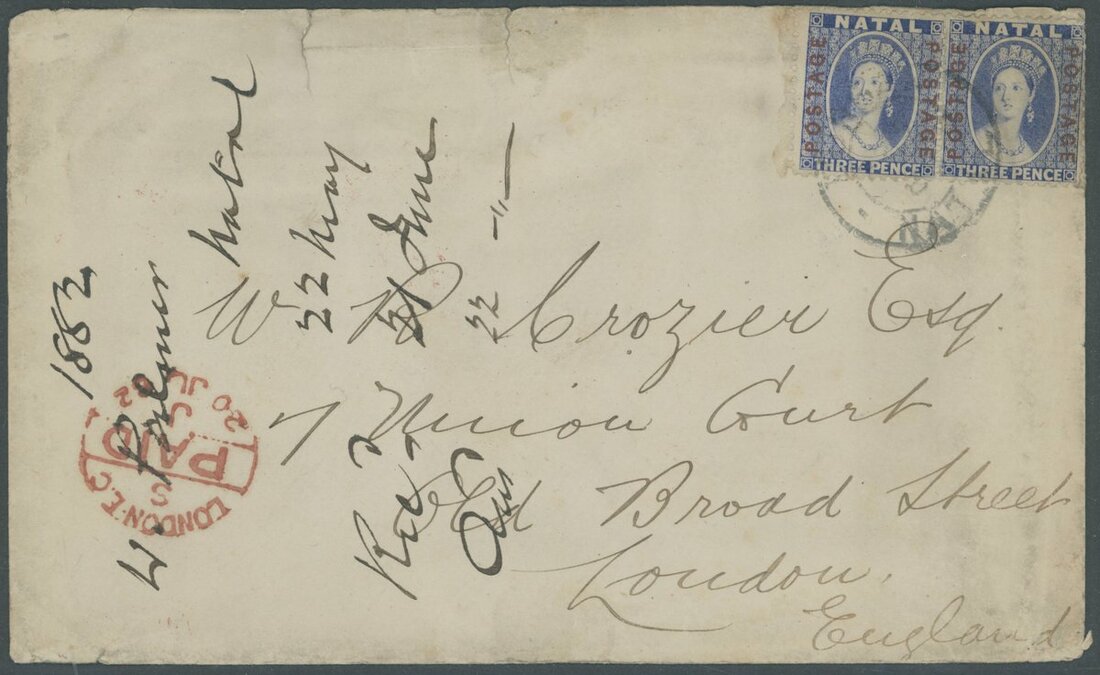 NATAL
POSTAGE
POSTAGE
THREE PENCE
NATAL
POSTAGE
POSTAGE
THREE PENCE
W R Crozier Esq.
7 Union Court
Old Broad Street
London.
England
1882
W. Palmer Natal
22 May
Rec 21 June
Ans 22 -"-
LONDON.E.C
S
PAID
20 JU 82